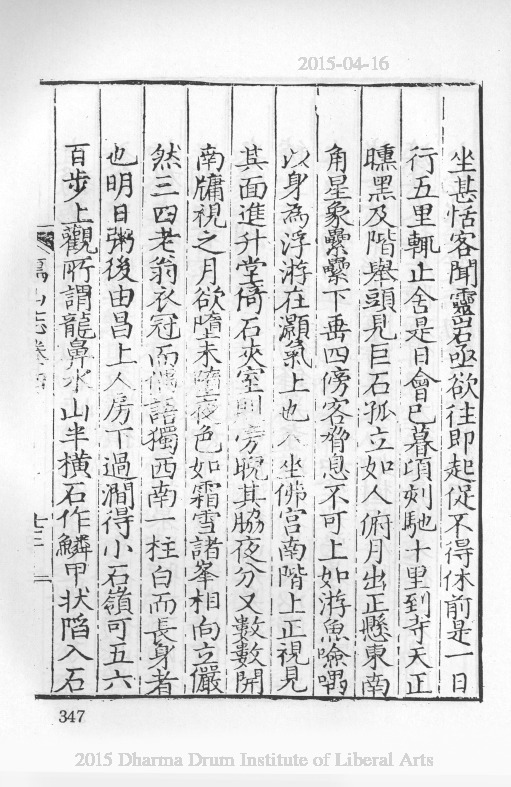 2015-04-16
坐甚恬客聞靈岩亟欲往即起從不得休前是一日
行五里輒止舍是日會已暮項刻馳十里到寺天正
曛黑及階舉頭見巨石孤立如人俯月出正懸東南
角星象纍纍下垂四傍客脅息不可上如游魚噞喁
以身為浮游在灝氣上也 坐佛宮南階上正視見
其面進升堂倚石夾室 旁睨其脇夜分又數數開
南牖視之月欲墮未墮夜色如霜雪諸峯相向立儼
然三四老翁衣冠而偶語獨西南一柱白而長身者
也明日粥後由昌上人房下過澗得小石嶺可五六
百步上觀所謂龍鼻水山半橫石作鱗甲状陷入石
山志卷
347
2015 Dharma Drum Institute of Liberal Arts